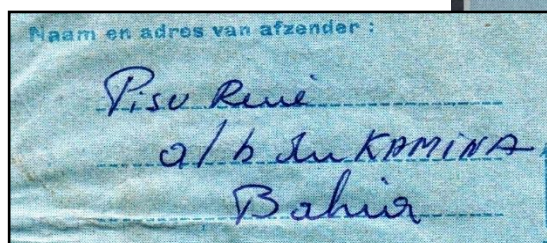 Naam en adres van afzender :
Pisu René
a/b du KAMINA
Bahia